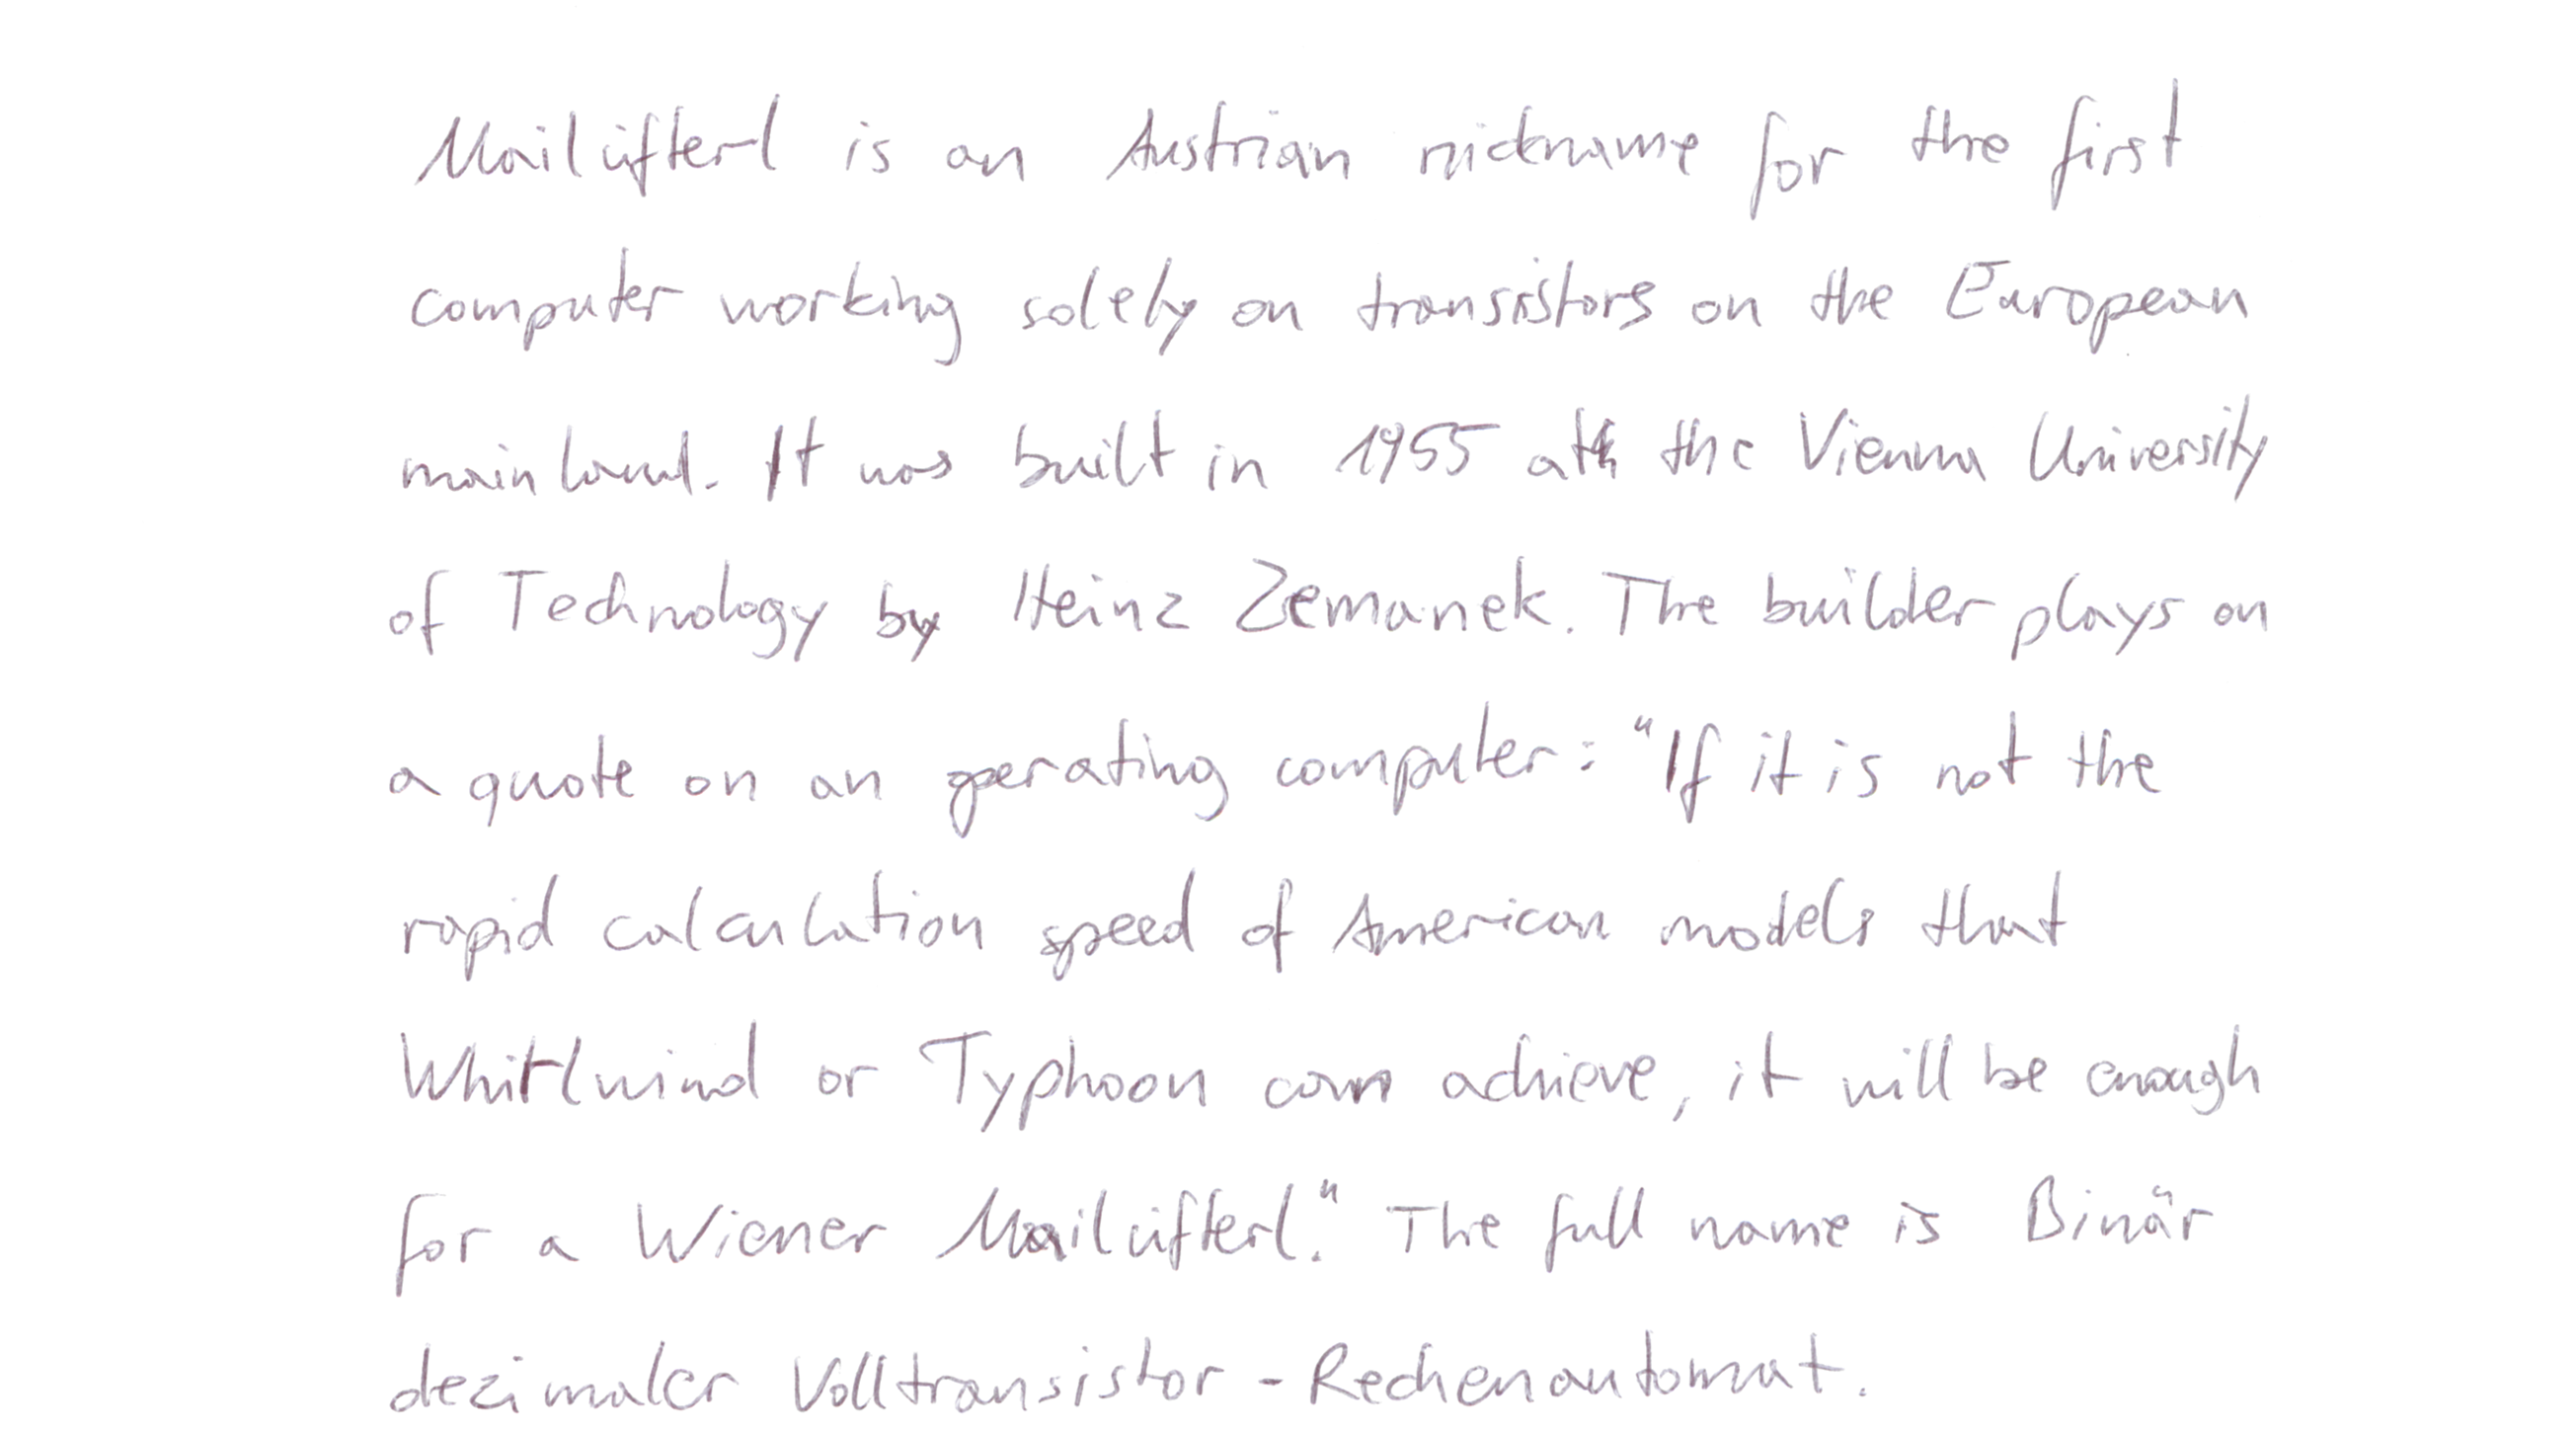 Mailüfterl is an Austrian nickname for the first
computer working solely on transistors on the European
mainland. It was built in 1955 at the Vienna University
of Technology by Heinz Zemanek. The builder plays on
a quote on an operating computer: "If it is not the
rapid calculation speed of American models that
Whirlwind or Typhoon can achieve, it will be enough
for a Wiener Mailüfterl." The full name is Binär
dezimaler Volltransistor-Rechenautomat.